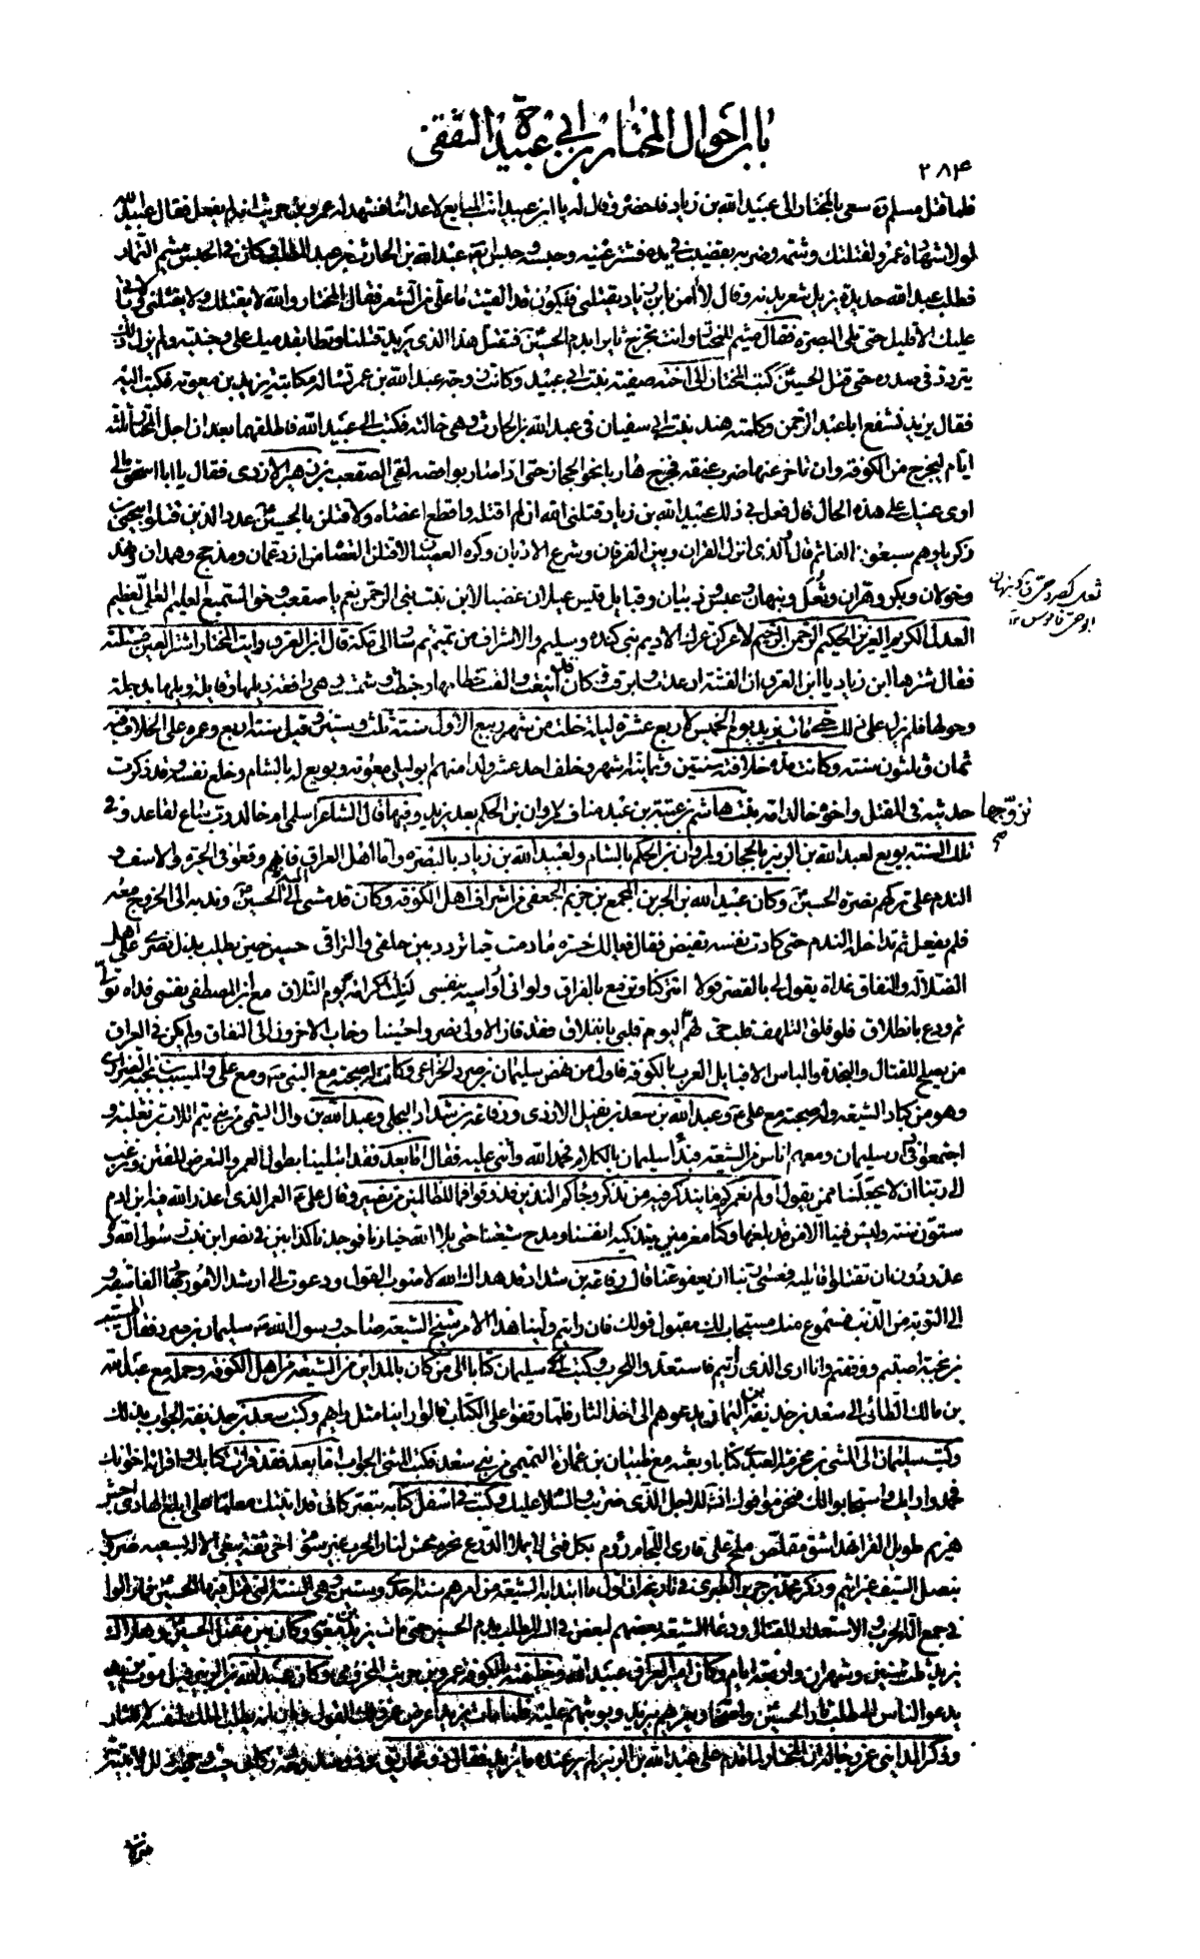 باب احوال المختار بن ابي عبيد الثقفي
٢٨۴
فلما قتل مسلم ره سعى بالمختار الى عبيد الله بن زياد فاحضره وقال له يا ابن عبيد انت المبايع لاعدائنا فشهد له عمرو بن حريث انه لم يفعل فقال عبيد الله
لولا شهادة عمرو لقتلتك وشتمه وضربه بقضيب في يده فشتر عينه وحبسه وحبس ايضا عبد الله بن الحارث بن عبد المطلب وكان في الحبس ميثم التمار
فطلب عبد الله حديدة يزيل شعر بدنه وقال لا أمن ابن زياد يقتلني فيكون قد القيت ما علي من الشعر فقال المختار والله لا يقتلك ولا يقتلني ولا ياتي
عليك الا قليل حتى تلي البصرة فقال ميثم للمختار وانت تخرج ثايرا بدم الحسين فتقتل هذا الذي يريد قتلنا وتطا بقدميك على وجنتيه ولم يزل ذلك
يتردد في صدره حتى قتل الحسين كتب المختار الى اخته صفية بنت ابي عبيد وكانت زوجة عبد الله بن عمر تساله مكاتبة يزيد بن معوية فكتب اليه
فقال يزيد نشفع ابا عبد الرحمن وكلمته هند بنت ابي سفيان في عبد الله بن الحارث وهي خالته فكتب الى عبيد الله فاطلقهما بعد ان اجل المختار ثلثة
ايام ليخرج من الكوفة وان تاخر عنها ضرب عنقه فخرج هاربا نحو الحجاز حتى اذا صار بواقصة لقي الصقعب بن زهير الازدي فقال يا ابا اسحق مالي
ارى عينك على هذه الحال قال فعل بي ذلك عبيد الله بن زياد قتلني الله ان لم اقتله واقطع اعضاه ولاقتلن بالحسين عدد الذين قتلوا بيحيى بن
زكريا وهم سبعون الفا ثم قال والذي انزل القران وبين الفرقان وشرع الاديان وكره العصيان لاقتلن العصاة من ازد عمان ومذحج وهمدان ونهد
وخولان وبكر وهران وثعل ونبهان وعبس وذبيان وقبايل قيس عيلان غضبا لابن بنت نبي الرحمن نعم يا صقعب وحق السميع العليم العلي العظيم
العدل الكريم العزيز الحكيم الرحمن الرحيم لاعركن عرك الاديم بني كنده وسليم والاشراف من تميم ثم سار الى مكة قال ابن العرق رايت المختار اشتر العين فسئلته
فقال شترها ابن زياد يا ابن العرق ان الفتنة ارعدت وابرقت وكان قد اينعت والقت خطامها وخبطت وشمست وهي رافعة ذيلها وقايلة ويلها بدجلة
وحولها فلم يزل على ذلك حتى مات يزيد يوم الخميس لاربع عشرة ليلة خلت من شهر ربيع الاول سنة ثلث وستين وقيل سنة اربع وعمره على الخلاف فيه
ثمان وثلثون سنة وكانت مدة خلافته سنتين وثمانية اشهر وخلف احد عشر ولدا منهم ابو ليلى معوية وبويع له بالشام وخلع نفسه وقد ذكرت
حديثه في المقتل واخوه خالد امه بنت هاشم بن عتبة بن عبد مناف مروان بن الحكم بعد يزيد وفيها قال الشاعر اسلمي ام خالد رب ساع لقاعد وفي
تزوجها صح
ثعل كصرد حي ونبهان
ابو حي قاموس ١٢
تلك السنة بويع لعبد الله بن الزبير بالحجاز ولمروان بن الحكم بالشام ولعبيد الله بن زياد بالبصرة واما اهل العراق فانهم وقعوا في الحيرة والاسف و
الندم على تركهم نصرة الحسين وكان عبيد الله بن الحر بن المجمع بن حزيم الجعفي من اشراف اهل الكوفة وكان قد مشى اليه الحسين وندبه الى الخروج معه
فلم يفعل ثم تداخله الندم حتى كادت نفسه تفيض فقال فيالك حسرة ما دمت حيا تردد بين حلقي والتراقي حسين حين يطلب بذل نصري على اهل
الضلالة والنفاق غداة يقول لي بالقصر قولا اتتركنا وتزمع بالفراق ولو اني اواسيه بنفسي لنلت كرامة يوم التلاق مع ابن المصطفى نفسي فداه تولى
ثم ودع بانطلاق فلو فلق التلهف قلب حي لهم اليوم قلبي بانفلاق فقد فاز الاولى نصروا حسينا وخاب الاخرون الى النفاق ولم يكن في العراق
من يصلح للقتال والنجدة والباس الا قبايل العرب بالكوفة فاول من نهض سليمان بن صرد الخزاعي وكانت له صحبة مع النبي ص ومع علي والمسيب بن نجبة الفزاري
وهو من كبار الشيعة وله صحبة مع علي ع وعبد الله بن سعد بن نفيل الازدي ورفاعة بن شداد البجلي وعبد الله بن وال التيمي من بني تيم اللات بن ثعلبة و
اجتمعوا في دار سليمان ومعهم اناس من الشيعة فبدأ سليمان بالكلام فحمد الله واثنى عليه فقال اما بعد فقد ابتلينا بطول العمر والتعرض للفتن ونرغب
الى ربنا ان لا يجعلنا ممن يقول اولم نعمركم ما يتذكر فيه من تذكر وجاءكم النذير فذوقوا فما للظالمين من نصير وقال علي ع العمر الذي اعذر الله فيه ابن ادم
ستون سنة وليس فينا الا من قد بلغها وكنا مغرمين بتزكية انفسنا ومدح شيعتنا حتى بلا الله خيارنا فوجدنا كذابين في نصر ابن بنت رسول الله ولا
عذر دون ان تقتلوا قاتليه فعسى ربنا ان يعفو عنا قال رفاعة بن شداد قد هداك الله لاصوب القول ودعوت الى ارشد الامور جهاد الفاسقين و
الى التوبة من الذنب فمسموع منك مستجاب لك مقبول قولك فان رايتم ولينا هذا الامر شيخ الشيعة صاحب رسول الله ص سليمان بن صرد فقال المسيب
بن نجبة اصبتم ووفقتم وانا ارى الذي رأيتم فاستعدوا للحرب وكتب سليمان كتابا الى من كان بالمداين من الشيعة من اهل الكوفة وحمله مع عبد الله
بن مالك الطائي الى سعد بن حذيفة بن اليماني يدعوهم الى اخذ الثار فلما وقفوا على الكتاب قالوا راينا مثل رايهم وكتب سعد بن حذيفة الجواب بذلك
وكتب سليمان الى المثنى بن مخرمة العبدي كتابا وبعثه مع ظبيان بن عمارة التميمي من بني سعد فكتب المثنى الجواب اما بعد فقد قرات كتابك واقراته اخوانك
فحمدوا رايك واستجابوا لك فنحن موافوك انشاءالله للاجل الذي ضربت والسلام عليك وكتب في اسفل كتابه تبصر كاني قد اتيتك معلما على ابلغ الهادي اجش
هزيم طويل القرا نهد اشق مقلص ملح على قاري اللجام رؤم بكل فتى لا يملا الدرع نحره محش لنار الحرب غير سؤم اخي ثقة يبغي الاله بسعيه ضروب
بنصل السيف غير اثيم وذكر محمد بن جرير الطبري في تاريخه ان اول ما ابتدا به الشيعة من امرهم سنة احدى وستين وهي السنة التي قتل فيها الحسين فما زالوا
في جمع آلة الحرب والاستعداد للقتال ودعاء الشيعة بعضهم لبعض في السر للطلب بدم الحسين حتى مات يزيد بن معوية وكان بين مقتل الحسين وهلاك
يزيد ثلث سنين وشهران واربعة ايام وكان امير العراق عبيد الله وخليفته بالكوفة عمرو بن حريث المخزومي وكان عبد الله بن الزبير قبل موت يزيد
يدعو الناس الى طلب ثار الحسين واصحابه ويغريهم بيزيد ويوثبهم عليه فلما مات يزيد اعرض عن ذلك القول وبان انه يطلب الملك لنفسه لا للثار
وذكر المدايني عن رجاله ان المختار لما قدم على عبد الله بن الزبير لم ير عنده ما يريد فقال ذو مخاريق وذو مندوحة وركابي حيث وجهت ذلل لا تبيتن